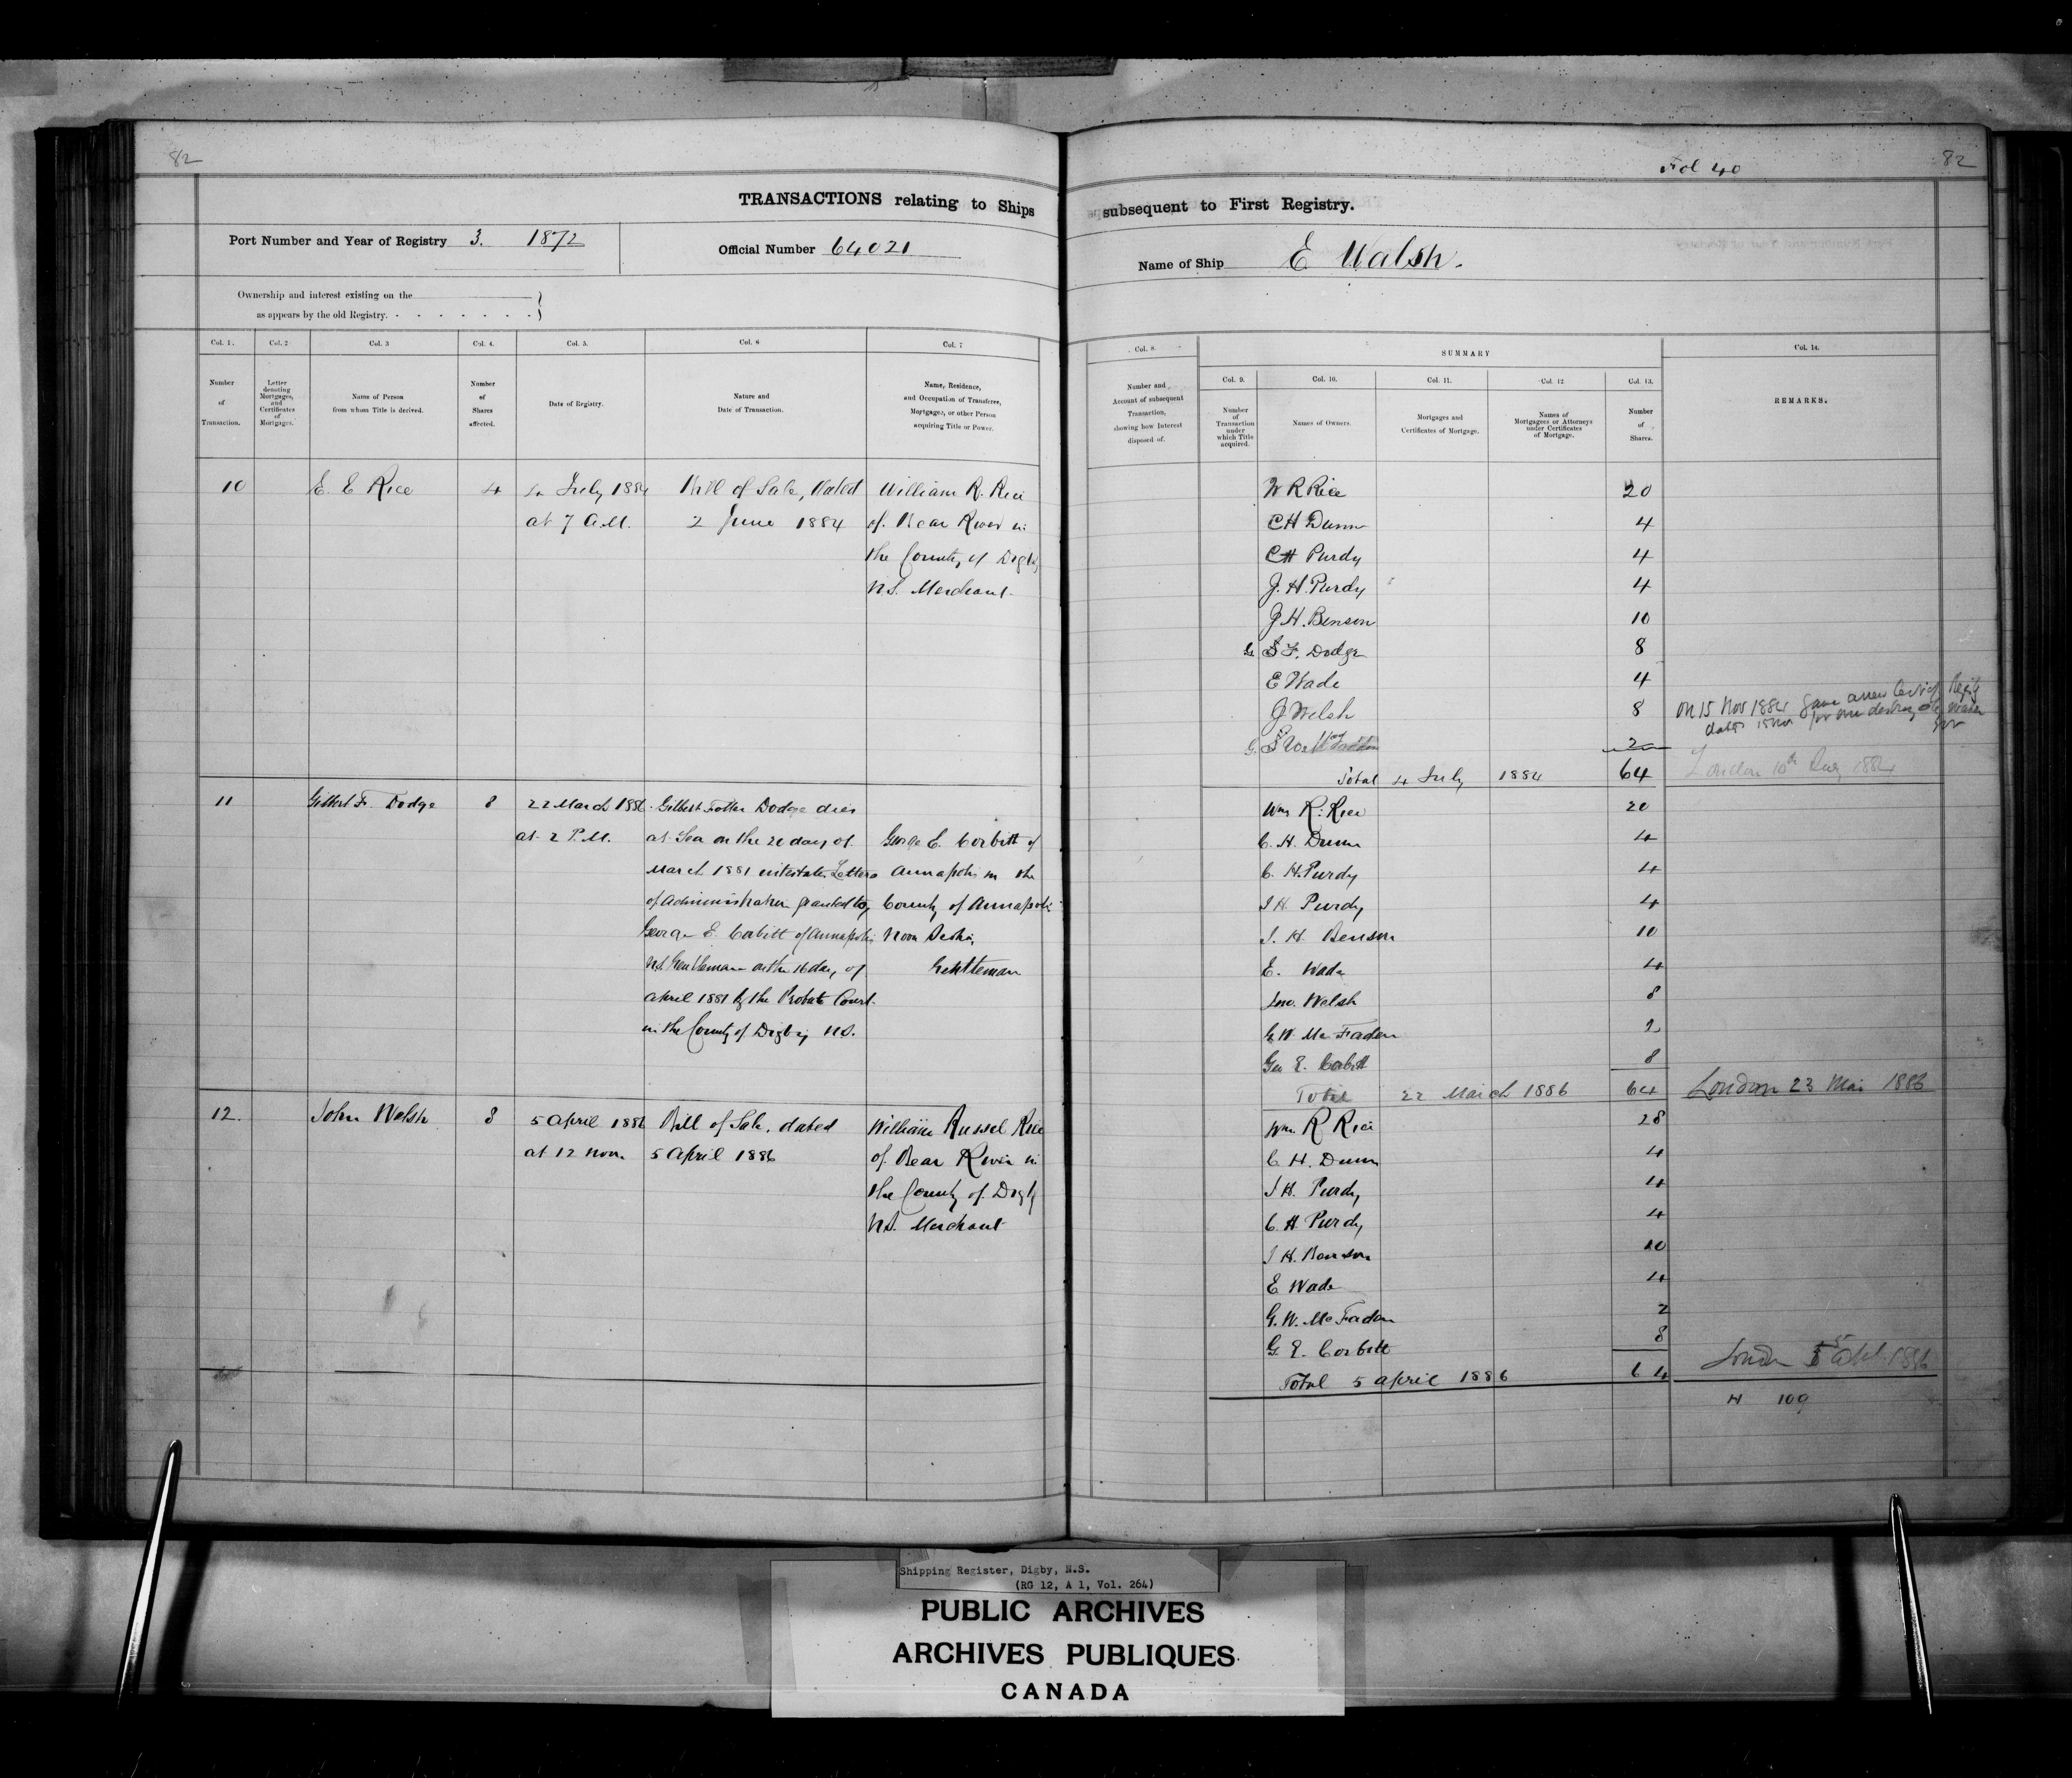 82
TRANSACTIONS relating to Ships
Port Number and Year of Registry 3. 1872
Official Number 64021
Ownership and interest existing on the
as appears by the old Registry.
Col. 1. Col. 2 Col. 3 Col. 4. Col. 5. Col. 6 Col. 7
Number of Transaction.
Letter denoting Mortgages, and Certificates of Mortgages.
Name of Person from whom Title is derived.
Number of Shares affected.
Date of Registry.
Nature and Date of Transaction.
Name, Residence, and Occupation of Transferee, Mortgagee, or other Person acquiring Title or Power.
10 E. E Rice 4 4 July 1884 Bill of Sale, Dated William R. Rice
at 7 A.M. 2 June 1884 of Bear River in
the County of Digby
N.S. Merchant
11 Gilbert F. Dodge 8 22 March 1886 Gilbert Dodge dies
at 2 P.M. at Sea on the 20 day of George E. Corbitt of
March 1881 intestate Letters Annapolis in the
of Administration granted to County of Annapolis
George E. Corbitt of Annapolis Nova Scotia,
N.S. Gentleman on the 16 day of Gentleman
April 1881 by the Probate Court
in the County of Digby N.S.
12. John Welsh 8 5 April 1886 Bill of Sale, dated William Russel Rice
at 12 noon 5 April 1886 of Bear River in
the County of Digby
N.S. Merchant
Fol 40
82
subsequent to First Registry.
Name of Ship E Walsh.
Col. 8. SUMMARY Col. 14.
Col. 9. Col. 10. Col. 11. Col. 12 Col. 13.
Number and Account of subsequent Transaction, showing how Interest disposed of.
Number of Transaction under which Title acquired.
Names of Owners.
Mortgages and Certificates of Mortgage.
Names of Mortgagees or Attorneys under Certificates of Mortgage.
Number of Shares.
REMARKS.
W R Rice 20
C H Dunn 4
C H Purdy 4
J. H. Purdy 4
J. H. Benson 10
G F. Dodge 8
E Wade 4
J Welsh 8
on 15 Nov 1884 gave a new
2
Total 4 July 1884 64
London 10th 1884
Wm R. Rice 20
C. H. Dunn 4
C. H. Purdy 4
J H. Purdy 4
J. H. Benson 10
E. Wade 4
Jno. Welsh 8
G. W. McFaden 2
Geo E. Corbitt 8
Total 22 March 1886 64
London 23 Mar 1886
Wm. R Rice 28
C H. Dunn 4
J H. Purdy 4
C. H. Purdy 4
J H. Benson 10
E Wade 4
G. W. McFaden 2
G. E. Corbitt 8
Total 5 April 1886 64
London 5 Apl. 1886
H 109
Shipping Register, Digby, N.S.
(RG 12, A 1, Vol. 264)
PUBLIC ARCHIVES
ARCHIVES PUBLIQUES
CANADA